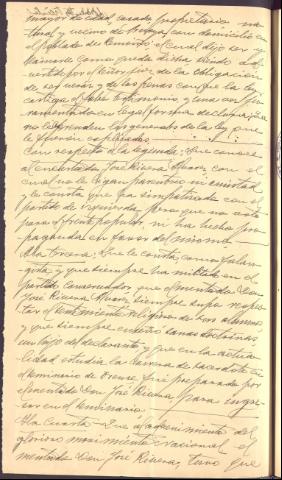 mayor de edad, casado, propietario, na-
tural y vecino de con domicilio en
el poblado de el cual dijo ser y
llamarse como queda dicho, siendo ad-
vertido por el señor juez de la obligación
de ser veraz y de las penas con que la ley
castiga el falso testimonio, y una vez ju-
ramentado en legal forma declaró: que
no le comprenden las generales de la ley que
le fueron explicadas.
Con respecto a la segunda: Que conoce
al encartado, José Rivera Alvarez, con el
cual no le ligan parentesco ni enemistad
y le consta que ha simpatizado con el
partido de izquierda, pero que no votó
para el frente popular, ni ha hecho pro-
paganda en favor del mismo.
A la tercera: Que le consta, como falan-
gista, y que siempre ha militado en el
partido conservador, que el mentado Don
José Rivera Alvarez siempre supo respe-
tar el sentimiento religioso de sus alumnos
y que siempre enseñó sanas doctrinas
un hijo del declarante y que en la actua-
lidad estudia la carrera de sacerdote en
el Seminario de fué preparado por
el mentado Don José Rivera, para ingre-
sar en el Seminario.
A la cuarta: Que al advenimiento del
glorioso movimiento Nacional, el
mentado Don José Rivera, tuvo que